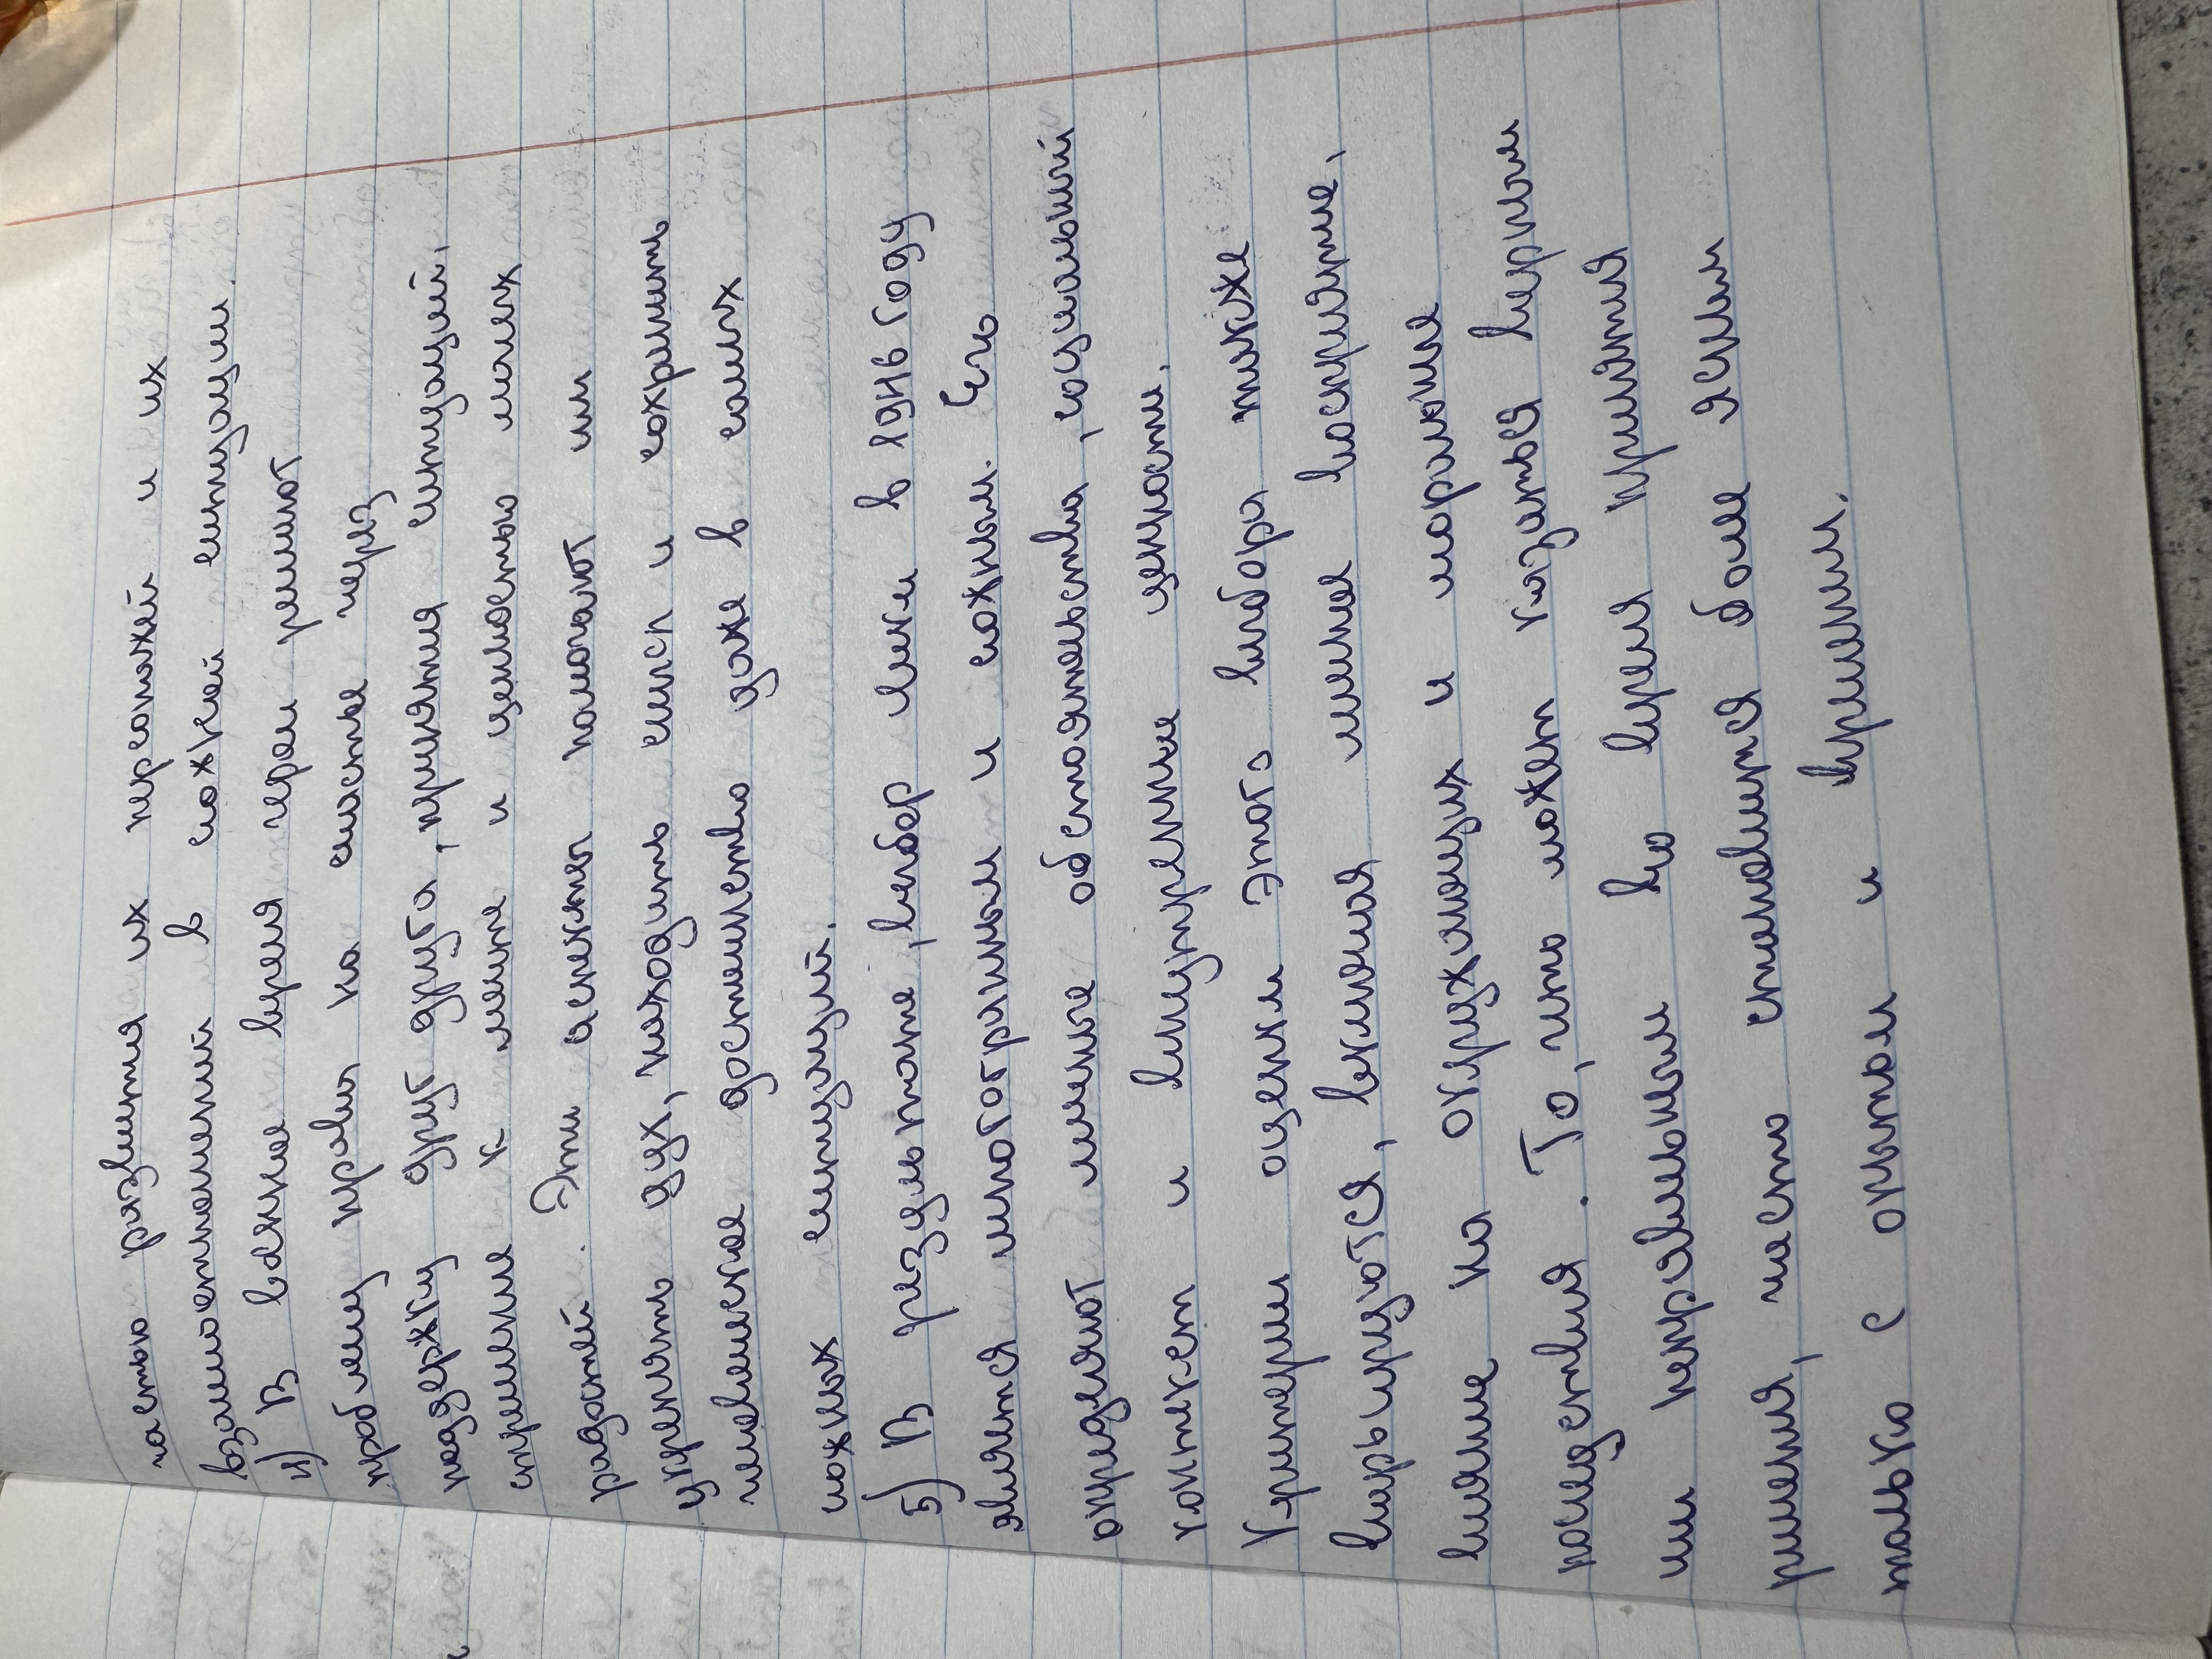 частью развития их персонажей и их
взаимоотношений в сложной ситуации.
4) В военное время герои решают
проблему права на счастье через
поддержку друг друга, принятия ситуаций,
стремление к мечте и ценностью малых
радостей. Эти аспекты помогают им
укрепить дух, находить смысл и сохранить
человеческое достоинство даже в самых
сложных ситуаций.
5) В результате, выбор Люси в 1946 году
является многогранным и сложным. Его
определяют личные обстоятельства, социальный
контекст и внутренние ценности.
Критерии оценки этого выбора также
варьируются, включая личное восприятие,
влияние на окружающих и моральные
последствия. То, что может казаться верным
или неправильным во время принятия
решения, часто становится более ясным
только с опытом и временем.